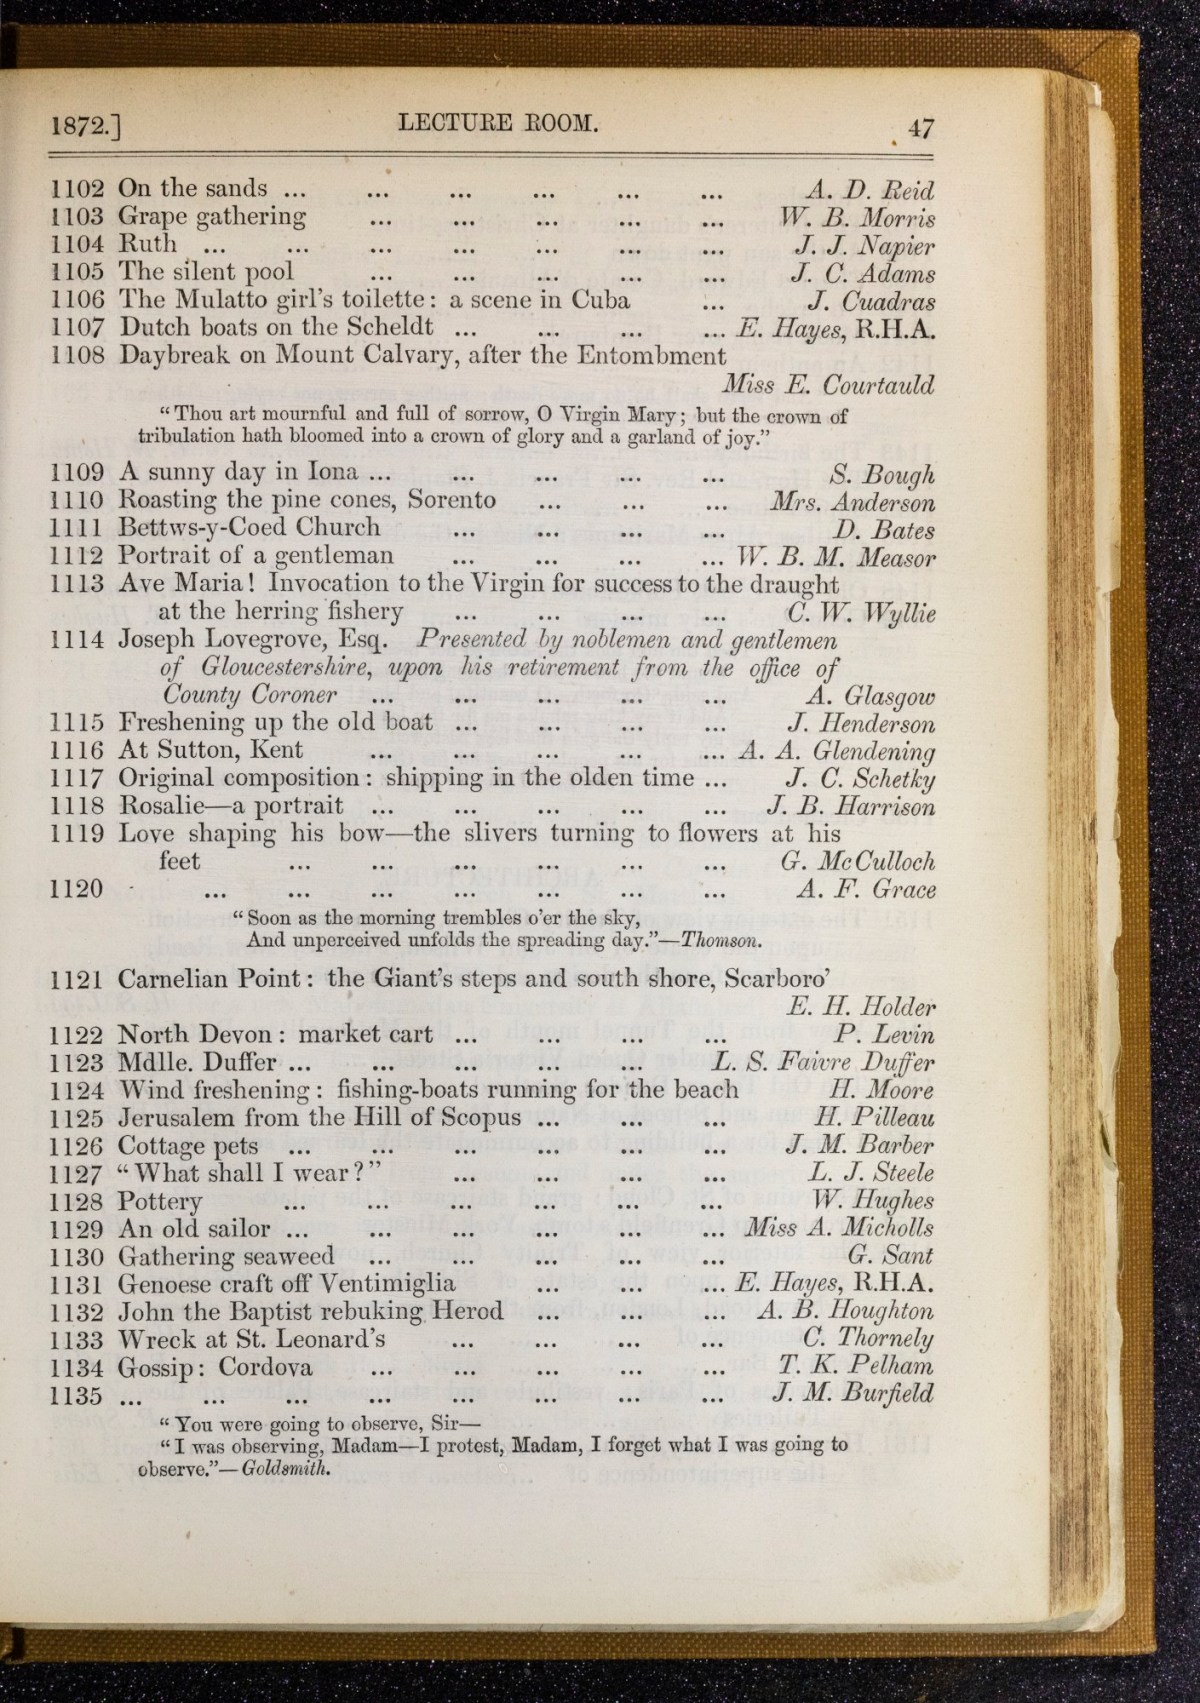 1872.] LECTURE ROOM. 47
1102 On the sands ... ... ... ... ... ... A. D. Reid
1103 Grape gathering ... ... ... ... ... W. B. Morris
1104 Ruth ... ... ... ... ... ... ... J. J. Napier
1105 The silent pool ... ... ... ... ... J. C. Adams
1106 The Mulatto girl's toilette: a scene in Cuba ... J. Cuadras
1107 Dutch boats on the Scheldt ... ... ... ... E. Hayes, R.H.A.
1108 Daybreak on Mount Calvary, after the Entombment
Miss E. Courtauld
"Thou art mournful and full of sorrow, O Virgin Mary; but the crown of
tribulation hath bloomed into a crown of glory and a garland of joy."
1109 A sunny day in Iona ... ... ... ... ... S. Bough
1110 Roasting the pine cones, Sorento ... ... ... Mrs. Anderson
1111 Bettws-y-Coed Church ... ... ... ... D. Bates
1112 Portrait of a gentleman ... ... ... ... W. B. M. Measor
1113 Ave Maria! Invocation to the Virgin for success to the draught
at the herring fishery ... ... ... ... C. W. Wyllie
1114 Joseph Lovegrove, Esq. Presented by noblemen and gentlemen
of Gloucestershire, upon his retirement from the office of
County Coroner ... ... ... ... ... A. Glasgow
1115 Freshening up the old boat ... ... ... ... J. Henderson
1116 At Sutton, Kent ... ... ... ... ... A. A. Glendening
1117 Original composition: shipping in the olden time ... J. C. Schetky
1118 Rosalie—a portrait ... ... ... ... ... J. B. Harrison
1119 Love shaping his bow—the slivers turning to flowers at his
feet ... ... ... ... ... ... G. McCulloch
1120 ... ... ... ... ... ... ... A. F. Grace
"Soon as the morning trembles o'er the sky,
And unperceived unfolds the spreading day."—Thomson.
1121 Carnelian Point: the Giant's steps and south shore, Scarboro'
E. H. Holder
1122 North Devon: market cart ... ... ... ... P. Levin
1123 Mdlle. Duffer ... ... ... ... ... L. S. Faivre Duffer
1124 Wind freshening: fishing-boats running for the beach H. Moore
1125 Jerusalem from the Hill of Scopus ... ... ... H. Pilleau
1126 Cottage pets ... ... ... ... ... ... J. M. Barber
1127 "What shall I wear?" ... ... ... ... L. J. Steele
1128 Pottery ... ... ... ... ... ... W. Hughes
1129 An old sailor ... ... ... ... ... ... Miss A. Micholls
1130 Gathering seaweed ... ... ... ... ... G. Sant
1131 Genoese craft off Ventimiglia ... ... ... E. Hayes, R.H.A.
1132 John the Baptist rebuking Herod ... ... ... A. B. Houghton
1133 Wreck at St. Leonard's ... ... ... ... C. Thornely
1134 Gossip: Cordova ... ... ... ... ... T. K. Pelham
1135 ... ... ... ... ... ... ... ... J. M. Burfield
"You were going to observe, Sir—
"I was observing, Madam—I protest, Madam, I forget what I was going to
observe."—Goldsmith.